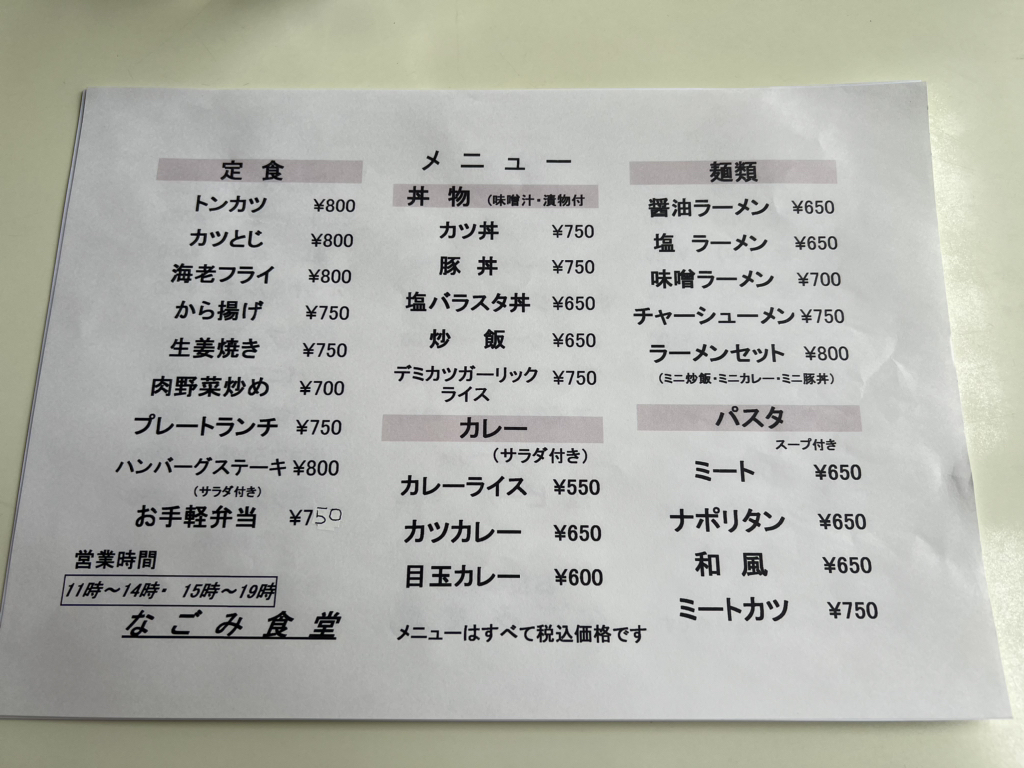 メニュー
定食
トンカツ ¥800
カツとじ ¥800
海老フライ ¥800
から揚げ ¥750
生姜焼き ¥750
肉野菜炒め ¥700
プレートランチ ¥750
ハンバーグステーキ ¥800
（サラダ付き）
お手軽弁当 ¥750
営業時間
11時～14時・ 15時～19時
なごみ食堂
丼物 （味噌汁・漬物付
カツ丼 ¥750
豚丼 ¥750
塩バラスタ丼 ¥650
炒飯 ¥650
デミカツガーリック ¥750
ライス
カレー
（サラダ付き）
カレーライス ¥550
カツカレー ¥650
目玉カレー ¥600
メニューはすべて税込価格です
麺類
醤油ラーメン ¥650
塩 ラーメン ¥650
味噌ラーメン ¥700
チャーシューメン ¥750
ラーメンセット ¥800
（ミニ炒飯・ミニカレー・ミニ豚丼）
パスタ
スープ付き
ミート ¥650
ナポリタン ¥650
和風 ¥650
ミートカツ ¥750